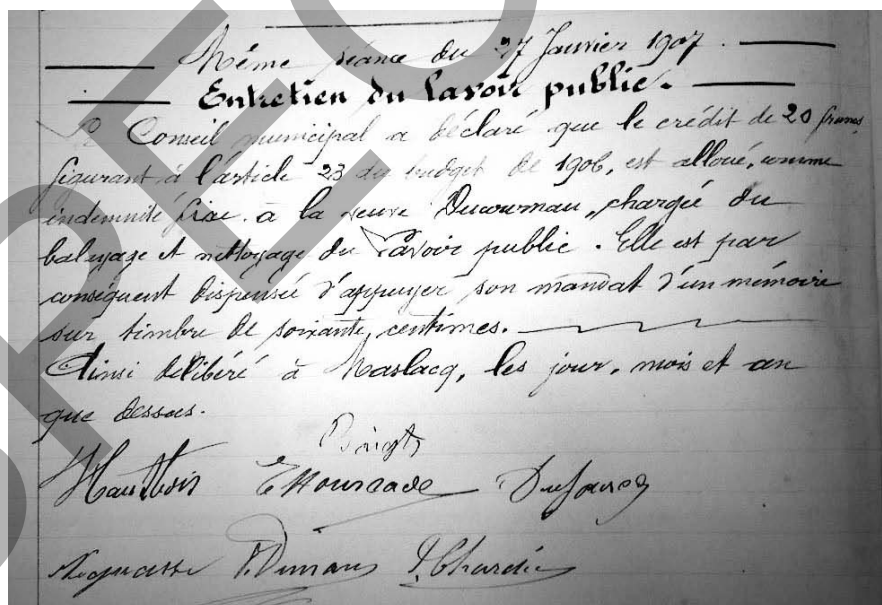 Même séance du 27 Janvier 1907.
Entretien du lavoir public.
Le Conseil municipal a déclaré que le crédit de 20 francs
figurant à l'article 23 du budget de 1906, est alloué, comme
indemnité fixe à la veuve Ducournau, chargée du
balayage et nettoyage du Lavoir public. Elle est par
conséquent dispensée d'appuyer son mandat d'un mémoire
sur timbre de soixante centimes.
Ainsi délibéré à Maslacq, les jour, mois et an
que dessus.